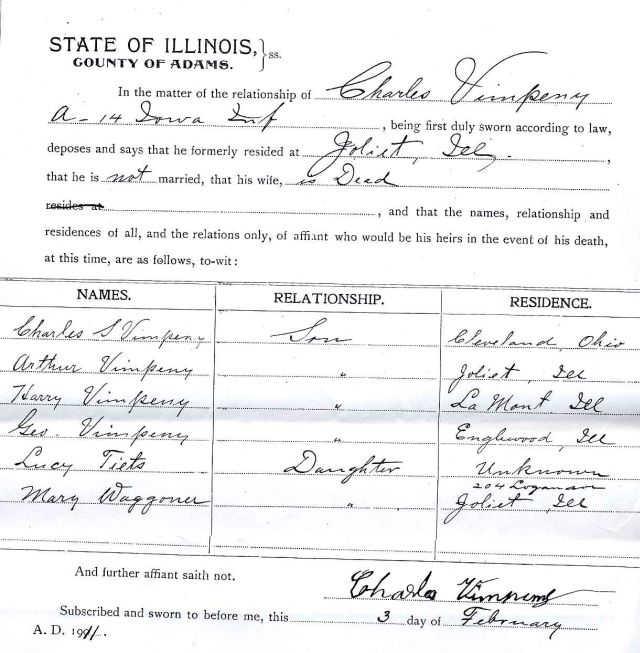 STATE OF ILLINOIS, } ss.
COUNTY OF ADAMS.
In the matter of the relationship of Charles Vimpeny
A - 14 Iowa Inf, being first duly sworn according to law,
deposes and says that he formerly resided at Joliet, Ill,
that he is not married, that his wife, is Dead
resides at, and that the names, relationship and
residences of all, and the relations only, of affiant who would be his heirs in the event of his death,
at this time, are as follows, to-wit:
NAMES. RELATIONSHIP. RESIDENCE.
Charles S Vimpeny Son Cleveland, Ohio
Arthur Vimpeny " Joliet, Ill
Harry Vimpeny " La Mont Ill
Geo. Vimpeny " Englewood, Ill
Lucy Tiets Daughter Unknown
204 Logan ave
Mary Waggoner " Joliet, Ill
And further affiant saith not.
Charles Vimpeny
Subscribed and sworn to before me, this 3 day of February
A. D. 1911.